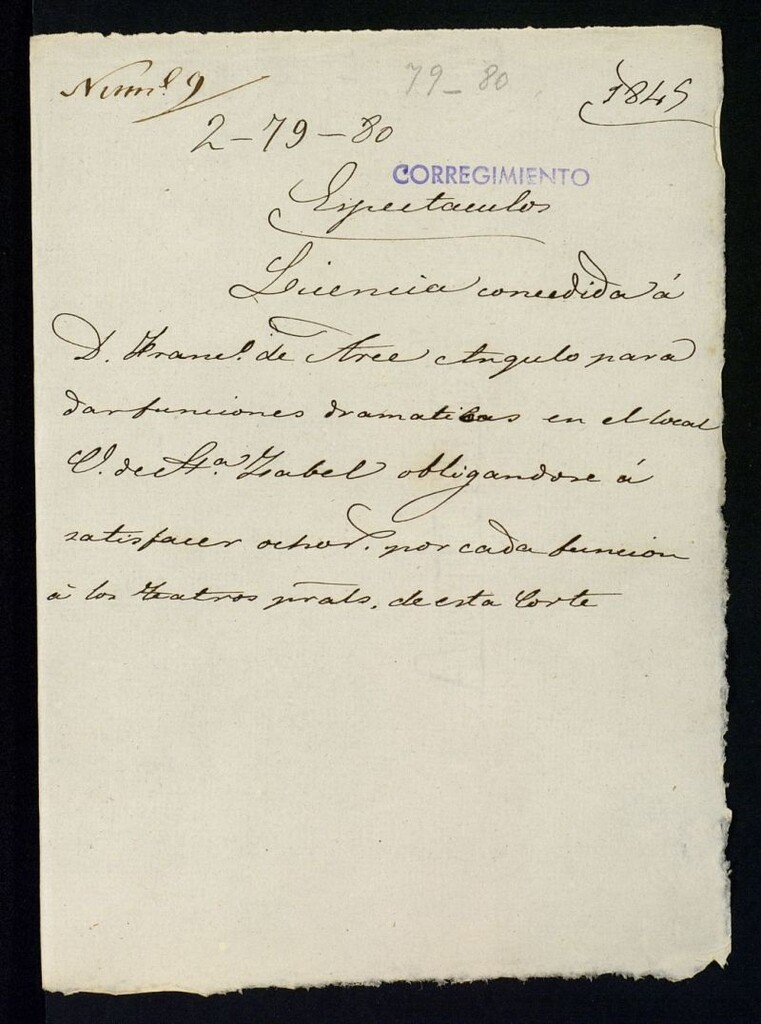 79-80
Num.º 9
1845
2-79-80
CORREGIMIENTO
Espectaculos
Licencia concedida á
D. Franc.º de Arce Angulo para
dar funciones dramaticas en el local
C. de Sta. Isabel obligandose á
satisfacer ocho r.s por cada funcion
á los teatros prals. de esta Corte